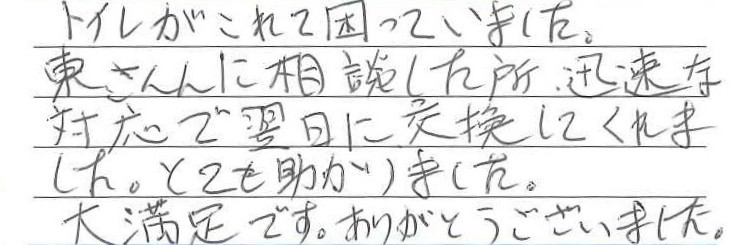 トイレがこれて困っていました。
東さんに相談した所、迅速な
対応で翌日に交換してくれま
した。とても助かりました。
大満足です。ありがとうございました。